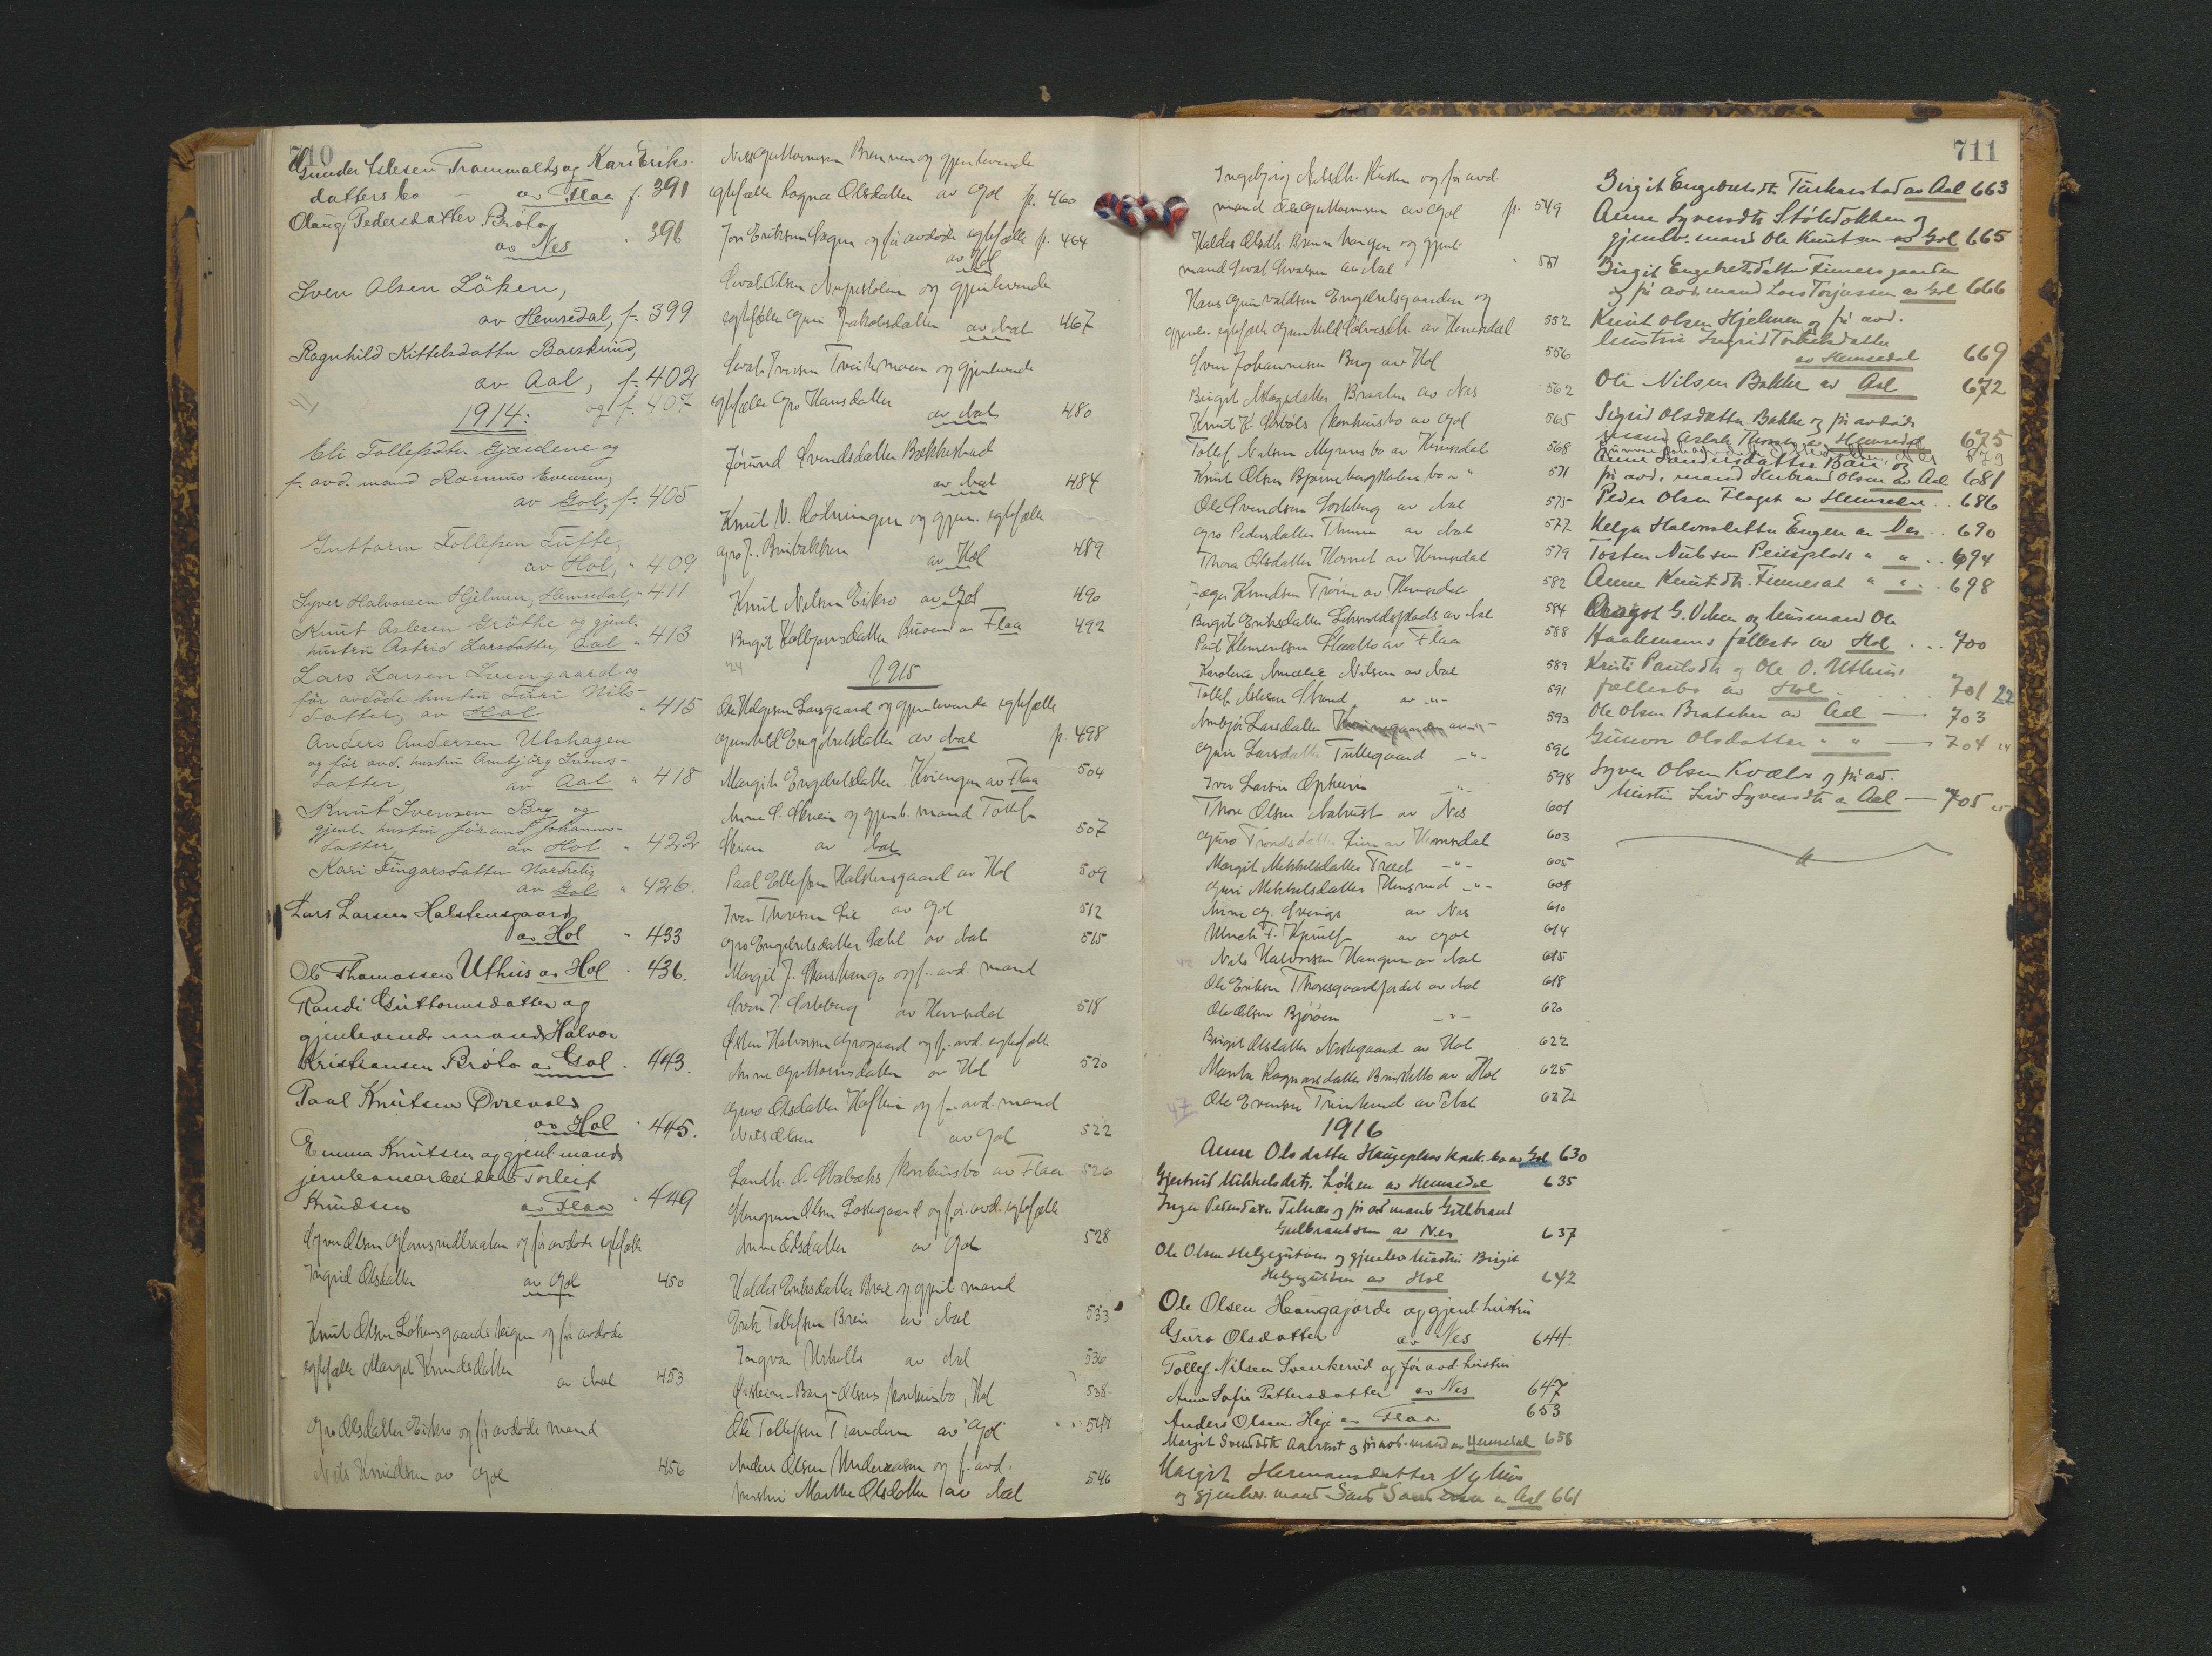 710
Gunder Eslesen Trommaltsog Kari Eriks-
datters bo av Flaa f. 391
Olaug Pedersdatter Bråta
av Nes " 396
Sven Olsen Löken,
av Hemsedal, f. 399
Ragnhild Kittelsdatter Barskrind,
av Aal, f. 402
og f. 407
1914:
Eli Tollefsdtr. Gjærdene og
f. avd. mand Rasmus Evensen,
av Gol, f. 405
Guttorm Tollefsen Tufte,
av Hol, " 409
Syver Halvorsen Hjelmen, Hemsedal, " 411
Knut Aslesen Gråthe og gjenl.
hustru Astrid Larsdatter, Aal " 413
Lars Larsen Sveingaard og
för avdöde hustru Turi Nils-
datter, av Hol " 415
Anders Andersen Ulshagen
og för avd. hustru Ambjörg Svens-
datter, av Aal " 418
Knut Svensen Bry og
gjenl. hustru Jörand Johannes-
datter, av Hol " 422
Kari Fingarsdatter Nordreli,
av Gol " 426.
Lars Larsen Halstensgaard
av Hol " 433
Ole Thomassen Uthus av Hol . 436.
Randi Guttormsdatter og
gjenlevende mand Halvor
Kristiansen Bråta av Gol . 443.
Paal Knutsen Övrevold
av Hol . 445.
Emma Knutsen og gjenl. mand
jernbanearbeider Torleif
Knudsen av Flaa . 449
Syver Olsen Glomsrudbraaten og før avdøde egtefælle
Ingrid Olsdatter av Gol 450
Knut Olsen Løkensgaardshagen og før avdøde
egtefælle Margit Knudsdatter
av Aal 453
Gro Olsdatter Eikro og før avdøde mand
Nils Knudsen av Gol 456
Nils Guttormsen Brennen og gjenlevende
egtefælle Ragna Olsdatter av Gol p. 460
Jon Eriksen Hagen og før avdøde egtefælle p. 464
av Hol
Sevat Olsen Nupestølen og gjenlevende
egtefælle Guri Jakobsdatter av Aal 467
Sevat Iversen Treitemoen og gjenlevende
egtefælle Gro Hansdatter
av Aal 480
Jørund Svendsdatter Bækkestad
av Aal 484
Knut V. Rodningen og gjen. egtefælle
Gro J. Breibakken
av Hol 489
Knut Nilsen Eikro av Gol 490
Birgit Kolbjørnsdatter Bruen av Flaa 492
24
1915
Ole Helgesen Larsgaard og gjenlevende egtefælle
Gunhild Engebretsdatter av Aal p. 498
Margit Engebretsdatter Kviengen av Flaa 504
Anne S. Skrein og gjenl. mand Tollef
Skrein av Aal 507
Paal Ellefsen Halstensgaard av Hol 509
Iver Thoresen Lie av Gol 512
Gro Engebretsdatter Sæhl av Aal 515
Margit J. og f. avd. mand
Sven T. Gorteberg av Hemsedal 518
Østen Halvorsen Grøgaard og f. avd. egtefælle
Anne Guttormsdatter av Hol 520
Guro Olsdatter Haftun og f. avd. mand
Nils Olsen av Gol 522
Landh. A. Skabachs konkursbo av Flaa 526
Olsen Lostegaard og før. avd. egtefælle
Anne Olsdatter av Gol 528
Haldis Eriksdatter Breie og gjenl. mand
Erik Tollefsen Breie av Aal 533
Ingvar av Aal 536
Østheim-Bang-Olsens konkursbo, Hol 538
Ole Tollefsen Trandum av Gol " " 541
Anders Olsen Underaasen og f. avd.
hustru Marthe Olsdatter av Aal 546
711
Ingebjørg Nilsdtr. Rusten og før avd.
mand Ole Guttormsen av Gol p. 549
Haldis Olsdtr. Breiehagen og gjenl.
mand Sevat Sevatsen av Aal " 551
Hans Gunvaldsen Engebretsgaarden og
gjenlev. egtefælle Gunhild Solvesdtr. av Hemsedal 552
Sven Johannesen Berg av Hol 556
Birgit Aslagsdatter Braaten av Nes 562
Knut K. konkursbo av Gol 565
Tollef Nilsen Myrens bo av Hemsedal 568
Knut Olsen Bjørnebergstølen bo " " 571
Ole Svendsen Gorteberg av Aal 575
Gro Pedersdatter Thune av Aal 577
Thora Olsdatter Hornet av Hemsedal 579
Knudsen Trøim av Hemsedal 582
Birgit Eriksdatter av Aal 584
Paul Klementsen av Flaa 588
Karoline Amalie Nilsen av Aal 589
Tollef Aslesen Strand av -"- 591
Ambjør Larsdatter av -"- 593
Guri Larsdatter Tuftegaard -"- 596
Iver Larsen Opheim -"- 598
Thore Olsen Aabrust av Nes 601
Guro Trondsdatter Lien av Hemsedal 603
Margit Mikkelsdatter Træet -"- 605
Guri Mikkelsdatter -"- 608
Anne G. Svenige av Nes 610
Ulrick T. av Gol 614
42
Nils Halvorsen Haugen av Aal 615
Ole Eriksen Thoresgaardjordet av Aal 618
Ole Olsen Bjøråen -"- 620
Birgit Olsdatter Nestegaard av Hol 622
Marta Ragnvaldsdatter av Hol 625
47
Ole Evensen av Aal 627
1916
Anne Olsdatter Haugeplass konk. bo av Gol 630
Gjertrud Mikkelsdtr. Løken av Hemsedal 635
Inger Pedersdatter Telnæs og før avd mand Gulbrand
Gulbrandsen av Nes 637
Ole Olsen Helgegutuen og gjenlev hustru Birgit
Helgegutuen av Hol 642
Ole Olsen Haugajorde og gjenl. hustru
Guro Olsdatter av Nes 644.
Tollef Nilsen Svenkerud og før avd. hustru
Anne Sofie Pettersdatter av Nes 647
Anders Olsen Heje av Flaa 653
Margit Svendsdtr. Aabrust og før avd. mand av Hemsedal 658
Margit Hermansdatter Nyhus
og gjenlev. mand av Aal 661
Birgit Engebretsdtr. Turkarstad av Aal 663
Anne Syversdtr. Stöledokken og
gjenlv. mand Ole Knutsen av Gol 665
Birgit Engebretsdatter Finnersgaarden
og før avd. mand Lars Torjussen av Gol 666
Knut Olsen Hjelmen og før avd.
hustru Ingrid Torkelsdatter
av Hemsedal 669
Ole Nilsen Bakke av Aal 672
Sigrid Olsdatter Bakke og før avdøde
mand Aslak av Hemsedal 675
679
Anne Sandersdatter Bare og
før avd. mand Herbrand Olsen av Aal 681
Peder Olsen Flaget av Hemsedal . . 686
Helga Halvorsdatter Engen av Nes . . 690
Tosten Nilssen Peilsplads " " . . 694
Anne Knutsdtr. Finnesat " " . . 698
Aragot G. Viken og husmand Ole
Haakensens fællesbo av Hol . . . 700
Kristi Paulsdtr. og Ole O. Uthus'
fællesbo av Hol . . . . 701 22
Ole Olsen Brataker av Aal — 703
Gunvor Olsdatter " " — 704 24
Syver Olsen Kvælve og før avd.
hustru Liv Syversdtr. av Aal — 705 25